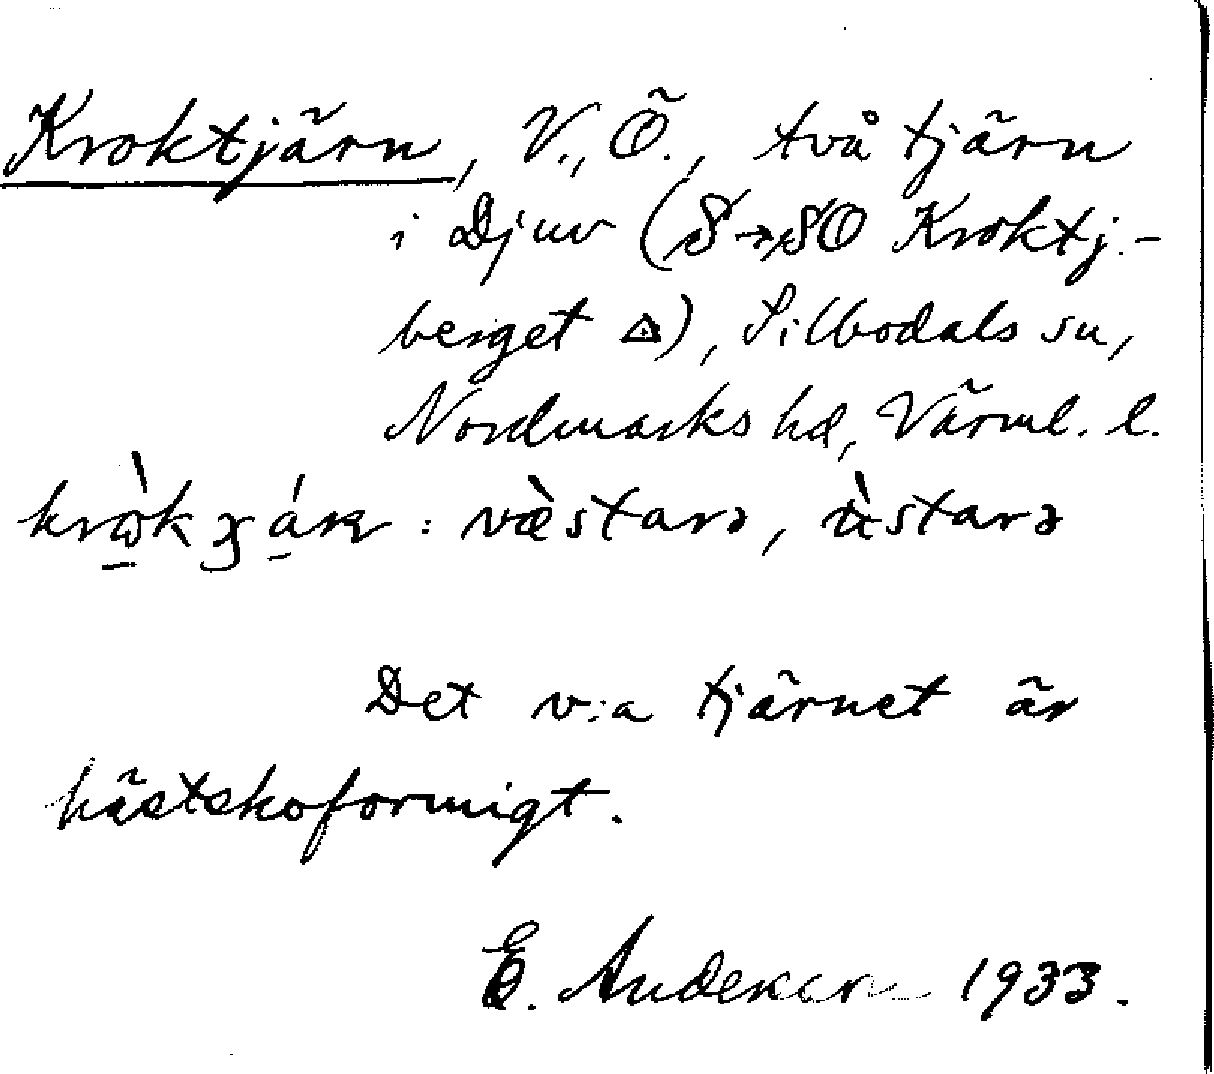 Kroktjärn, V., Ö., två tjärn
i Djuv (S→SO Kroktj.-
berget △), Silbodals sn,
Nordmarks hd, Värml. l.
: væ̀starə, ùstarə
Det v:a tjärnet är
hästskoformigt.
E. Anderson 1933.